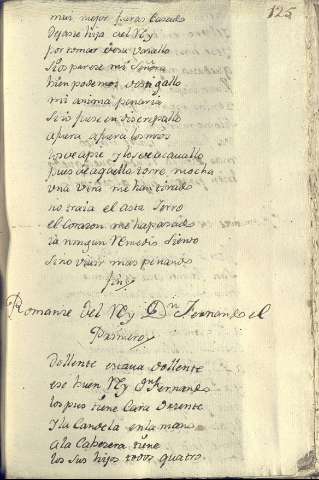 125
mui mejor fueras casado
dejase hija del Rey
por tomar de su vasallo
si os parece mi señora
bien podemos desligallo
mi anima penaria
si io fuese en discrepallo
afuera afuera los mios
los de apie y los de acauallo
pues de aquella torre mocha
vna vira me han tirado
no traia el asta ferro
el corazon me ha pasado
ia ningun Remedio siento
sino viuir mas penando
fin
Romanse del Rey Dn. Fernando el
Primero
Dollente estaua dollente
ese buen Rey dn. Fernando
los pies tiene cara oriente
y la candela en la mano
a la cabesera tiene
los sus hijos todos quatro.